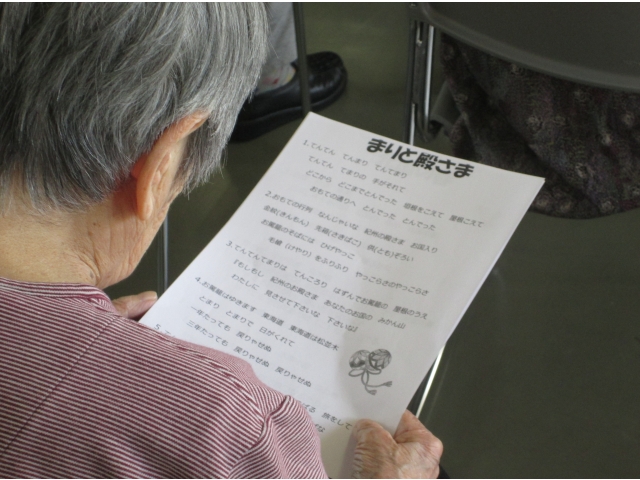 まりと殿さま
1.てんてん てんまり てんてまり
てんてん てまりの 手がそれて
どこから どこまでとんでった 垣根をこえて 屋根こえて
おもての通りへ とんでった とんでった
2.おもての行列 なんじゃいな 紀州の殿さま お国入り
金紋(きんもん) 先箱(さきばこ) 供(とも)ぞろい
お駕籠のそばには ひげやっこ
毛槍(けやり)をふりふり やっこらさのやっこらさ
3.てんてんてまりは てんころり はずんでお駕籠の 屋根のうえ
「もしもし 紀州のお殿さま あなたのお国の みかん山
わたしに 見させて下さいな 下さいな」
4.お駕籠はゆきます 東海道 東海道は松並木
とまり とまりで 日がくれて
一年たっても 戻りゃせぬ
三年たっても 戻りゃせぬ 戻りゃせぬ
5.
旅をして